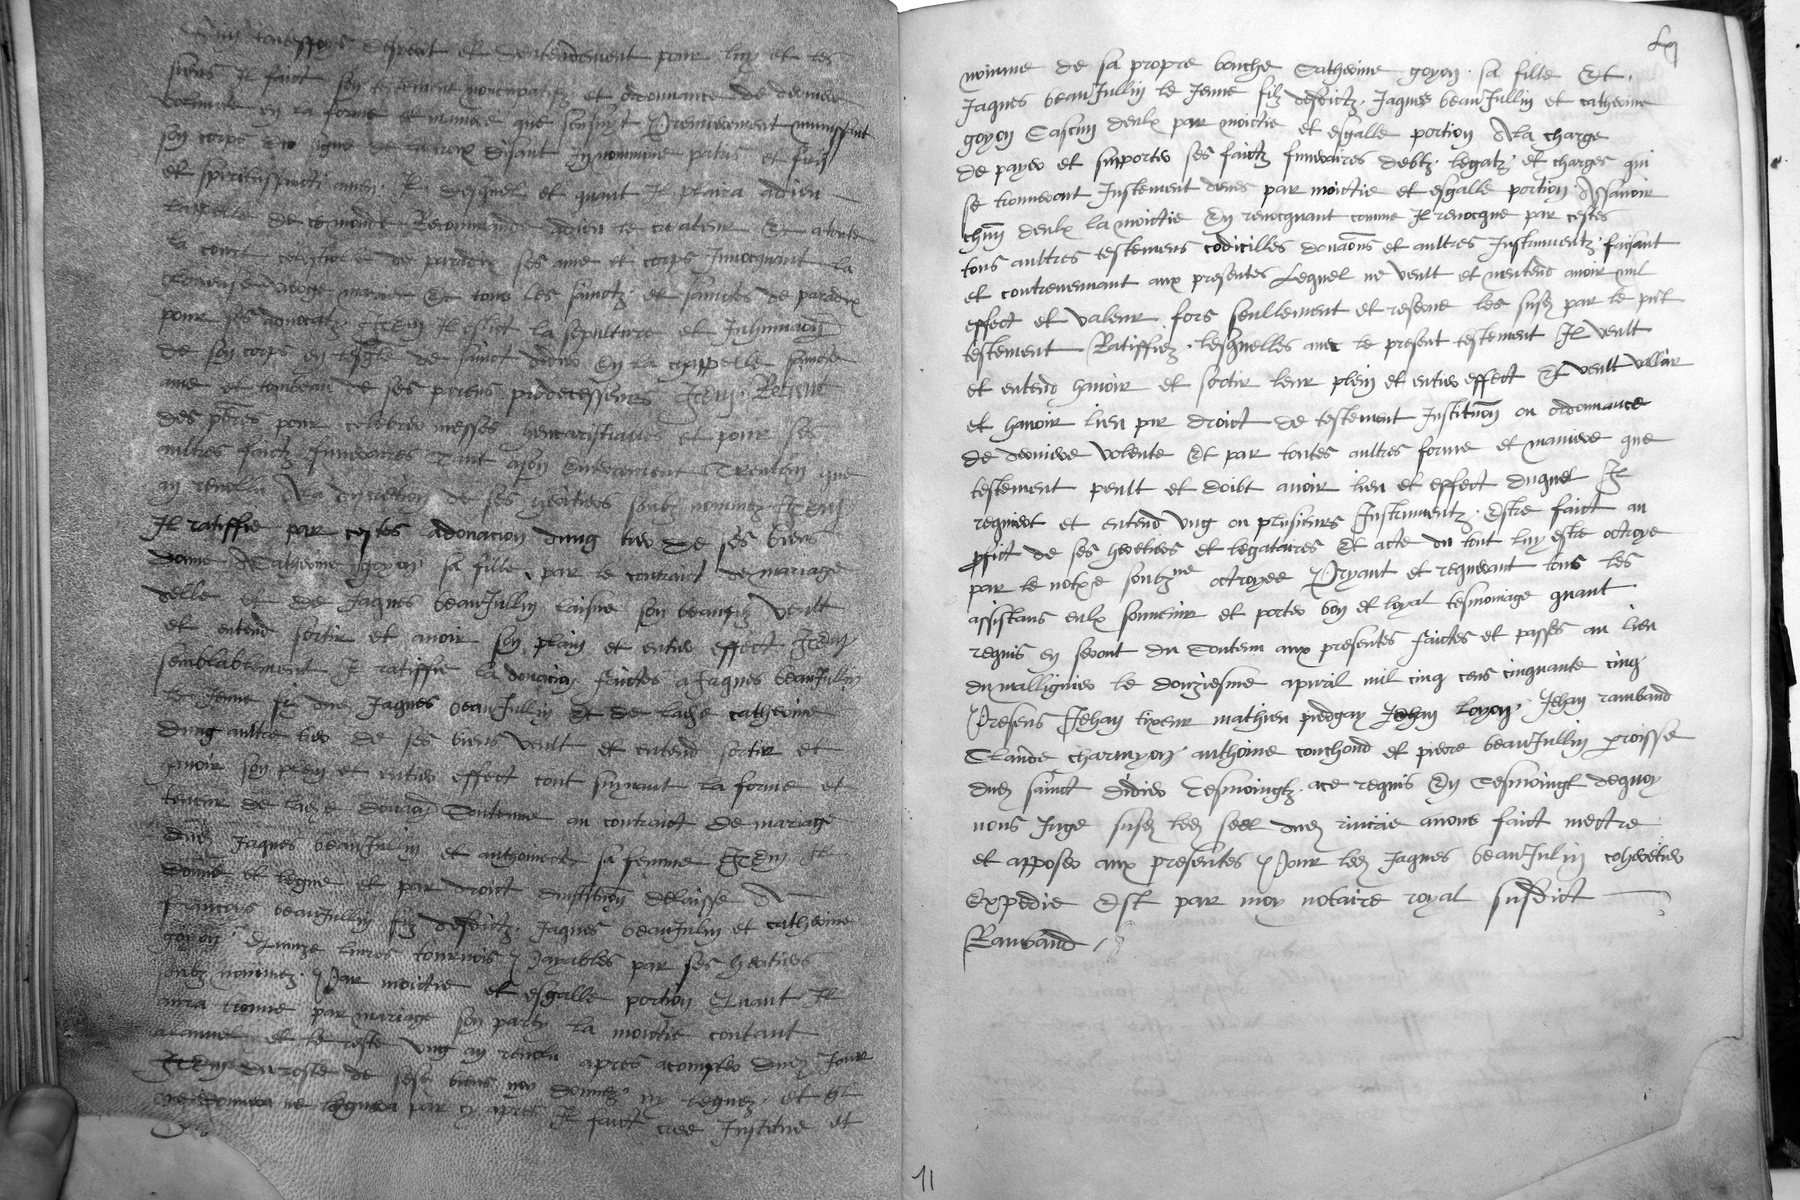 siens Il faict son testement noncupatifz et ordonnance de derniere
volunte en la forme et maniere que sensuyt Premierement munissant
son corps du signe de la croix disant In nomine patris et filij
et spiritussancti amen Il desquel et quant Il plaira a dieu
lappelle de ce monde Recommande a dieu le createur Et a toute
la court celestielle de paradix ses ame et corps Invocquant la
glorieuse vierge marie Et tous les sainctz et sainctes de paradix
pour ses advocatz Item Il eslict la sepulture et Inhumacion
de son corps en lesglise de sainct didier En la chappelle
et tombeau de ses priens predecesseurs Item Retient
des pbres pour celebrer messes et pour ses
aultres faictz funeraires Tant a son Enterrement Trentin que
an revollu A la discretion de ses heritiers soubz nommez Item
Il ratiffie par cestes a donacion dung tier de ses biens
donne A Catherine goyon sa fille par le contraict de mariage
delle et de Jaques beauJullin laisne son beaufilz veult
et entend sortir et avoir son plain et entier effect Item
semblablement Il ratiffie la donacion faictes a Jaques beauJullin
le Jeune filz dudz Jaques beauJullin Et de ladze catherine
dung aultre tier de ses biens veult et entend sortir et
havoir son plein et entier effect tout suyvant la forme et
teneur de ladze donaon Contenue au contraict de mariage
dudz Jaques beauJullin et anthomette sa femme Item Il
donne et legue et par droict dinstitution delaisse A
francoys beauJullin filz desdictz Jaques beauJullin et catherine
goyon Quinze livres tournois Payables par ses heritiers
soubz nommez Par moictie et esgalle portion Quant Il
aura trouve par mariage son party la moictie contant
et le reste ung an revolu apres a compter dudz Jour
Item du reste de ses biens non donnez ny leguez et quil
ne donnera ne leguera par cy apres Il faict cree Institue et
Lxj
nomme de sa propre bouche Catherine goyon sa fille Et
Jaques beauJullin le Jeune filz desdictz Jaques beauJullin et catherine
goyon Cascun deulx par moictie et esgalle portion A la charge
de payer et supporter ses faictz funeraires debtz legatz et charges qui
se trouveront Justement deues par moictie et esgalle portion Assavoir
chun deulx la moictie En revocquant comme Il revocque par cestes
tous aultres testemens codicilles donaons et aultres Instrumentz faisant
et contrevennant aux presentes Lequel ne veult et nentend avoir nul
effect et valeur fors seullement et reserve les susdz par le pnt
testement Ratiffiez lesquelles avec le present testement Il veult
et entend havoir et sortir leur plein et entier effect Et veult vallair
et havoir lieu par droict de testement Instituon ou ordonnance
de derniere volente Et par toutes aultres forme et maniere que
testement peult et doibt avoir lieu et effect duquel Il
requiert et entend ung ou plusieurs Instrumentz Estre faict au
pffict de ses heretiers et legataires Et acte du tout luy estre octroye
par le notre soubzne octroyee Pryant et requerant tous les
assistans eulx souvenir et porter bon et loyal tesmonage quant
requis en seront du Contenu aux presentes faictes et passes au lieu
du mallignier le douziesme apvril mil cinq cens cinquante cinq
Presens Jehan tixeur mathieu piedgay Jehan loyon Jehan rambaud
Claude charmyon anthoine couchoud et pierre beauJullin proisse
dudz sainct didier Tesmoingtz a ce requis En Tesmoingt dequoy
nous Juge susdz ledz seel dudz avons faict mectre
et apposer aux presentes Pour ledz Jaques beauJulin coheretier
Expedie Est par moy notaire royal susdict
Rambaud
11